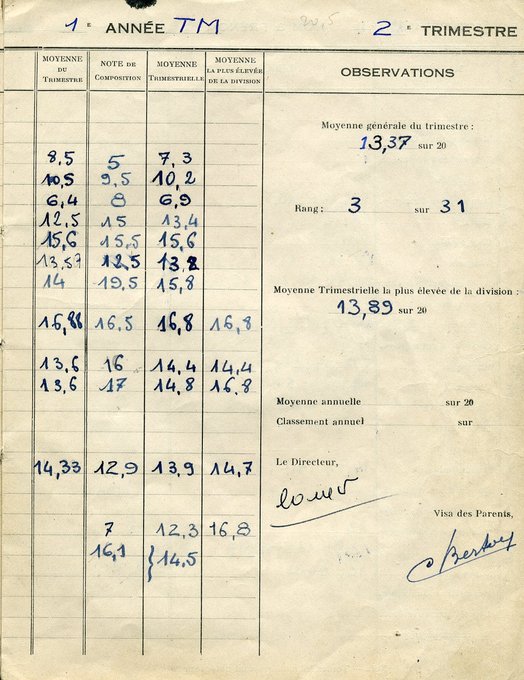 1e ANNÉE TM 2e TRIMESTRE
MOYENNE DU TRIMESTRE NOTE DE COMPOSITION MOYENNE TRIMESTRIELLE MOYENNE LA PLUS ÉLEVÉE DE LA DIVISION OBSERVATIONS
Moyenne générale du trimestre :
13,37 sur 20
8,5 5 7,3
10,5 9,5 10,2
6,4 8 6,9
Rang : 3 sur 31
12,5 15 13,4
15,6 15,5 15,6
13,57 12,5 13,2
14 19,5 15,8
Moyenne Trimestrielle la plus élevée de la division :
13,89 sur 20
16,88 16,5 16,8 16,8
13,6 16 14,4 14,4
13,6 17 14,8 16,8
Moyenne annuelle sur 20
Classement annuel sur
Le Directeur,
14,33 12,9 13,9 14,7
Visa des Parents,
7 12,3 16,8
16,1 14,5